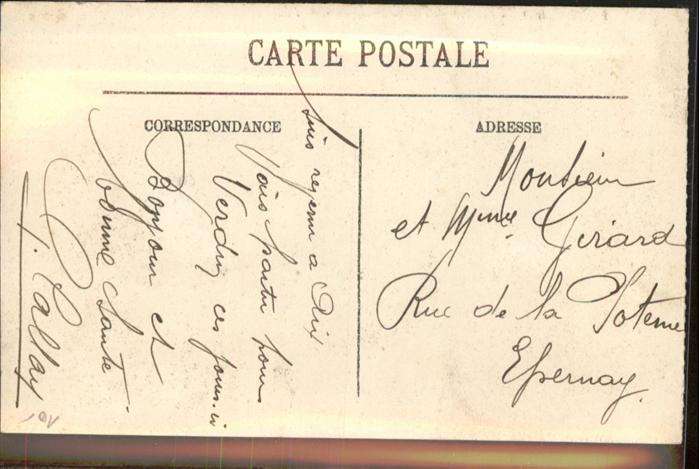 CARTE POSTALE
CORRESPONDANCE
ADRESSE
Suis revenu a
Vais partir pour
Verdun ces jours-ci
Bonjour et
bonne Santé
Monsieur
et Mme Girard
Rue de la Poterne
Epernay